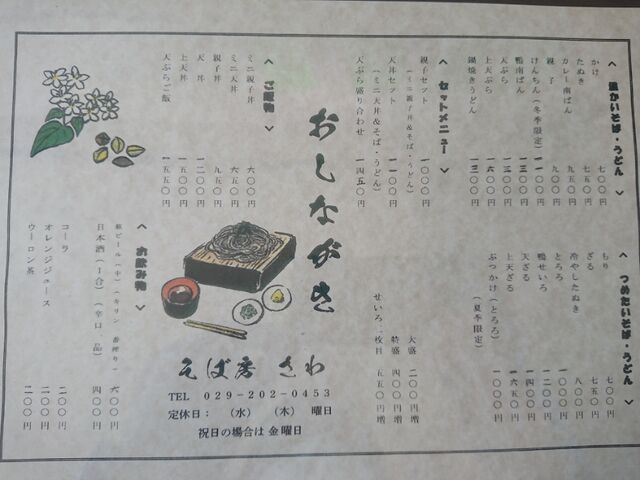 〈 温かいそば・うどん 〉
かけ 七〇〇円
たぬき 七五〇円
カレー南ばん 九五〇円
親子 九〇〇円
けんちん(冬季限定) 一一〇〇円
鴨南ばん 一三〇〇円
天ぷら 一三〇〇円
上天ぷら 一六〇〇円
鍋焼きうどん 一三〇〇円
〈 つめたいそば・うどん 〉
もり 七〇〇円
ざる 七五〇円
冷やしたぬき
とろろ 一〇〇〇円
鴨せいろ
天ざる
上天ざる 一六五〇円
ぶっかけ(とろろ)(夏季限定) 一〇〇〇円
〈 セットメニュー 〉
親子セット 一〇〇〇円
(ミニ親子丼&そば・うどん)
天丼セット 一一〇〇円
(ミニ天丼&そば・うどん)
天ぷら盛り合わせ 一四五〇円
大盛 二〇〇円増
特盛 四〇〇円増
せいろ一枚目 五五〇円増
おしながき
そば房 さわ
TEL 029-202-0453
定休日: (水) (木) 曜日
祝日の場合は 金曜日
〈 ご飯物 〉
ミニ親子丼 六〇〇円
ミニ天丼 六五〇円
親子丼 九五〇円
天丼 一二〇〇円
上天丼 一五〇〇円
天ぷらご飯 一五五〇円
〈 お飲み物 〉
瓶ビール(中)(キリン一番搾り) 六〇〇円
日本酒(1合)(辛口一品) 四〇〇円
コーラ 二〇〇円
オレンジジュース 二〇〇円
ウーロン茶 二〇〇円